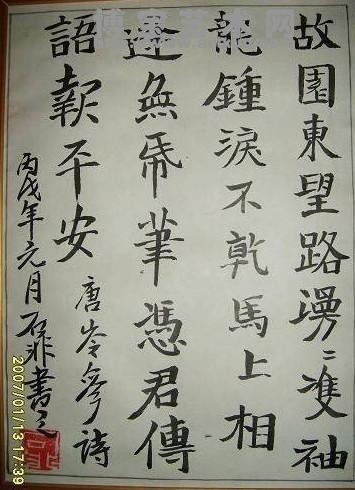 博宝艺术网
故園東望路漫〻雙袖
龍鍾淚不乾馬上相
逢無帋筆憑君傳
語報平安
唐岑參詩
丙戌年元月石非書之
2007/01/13 17:39